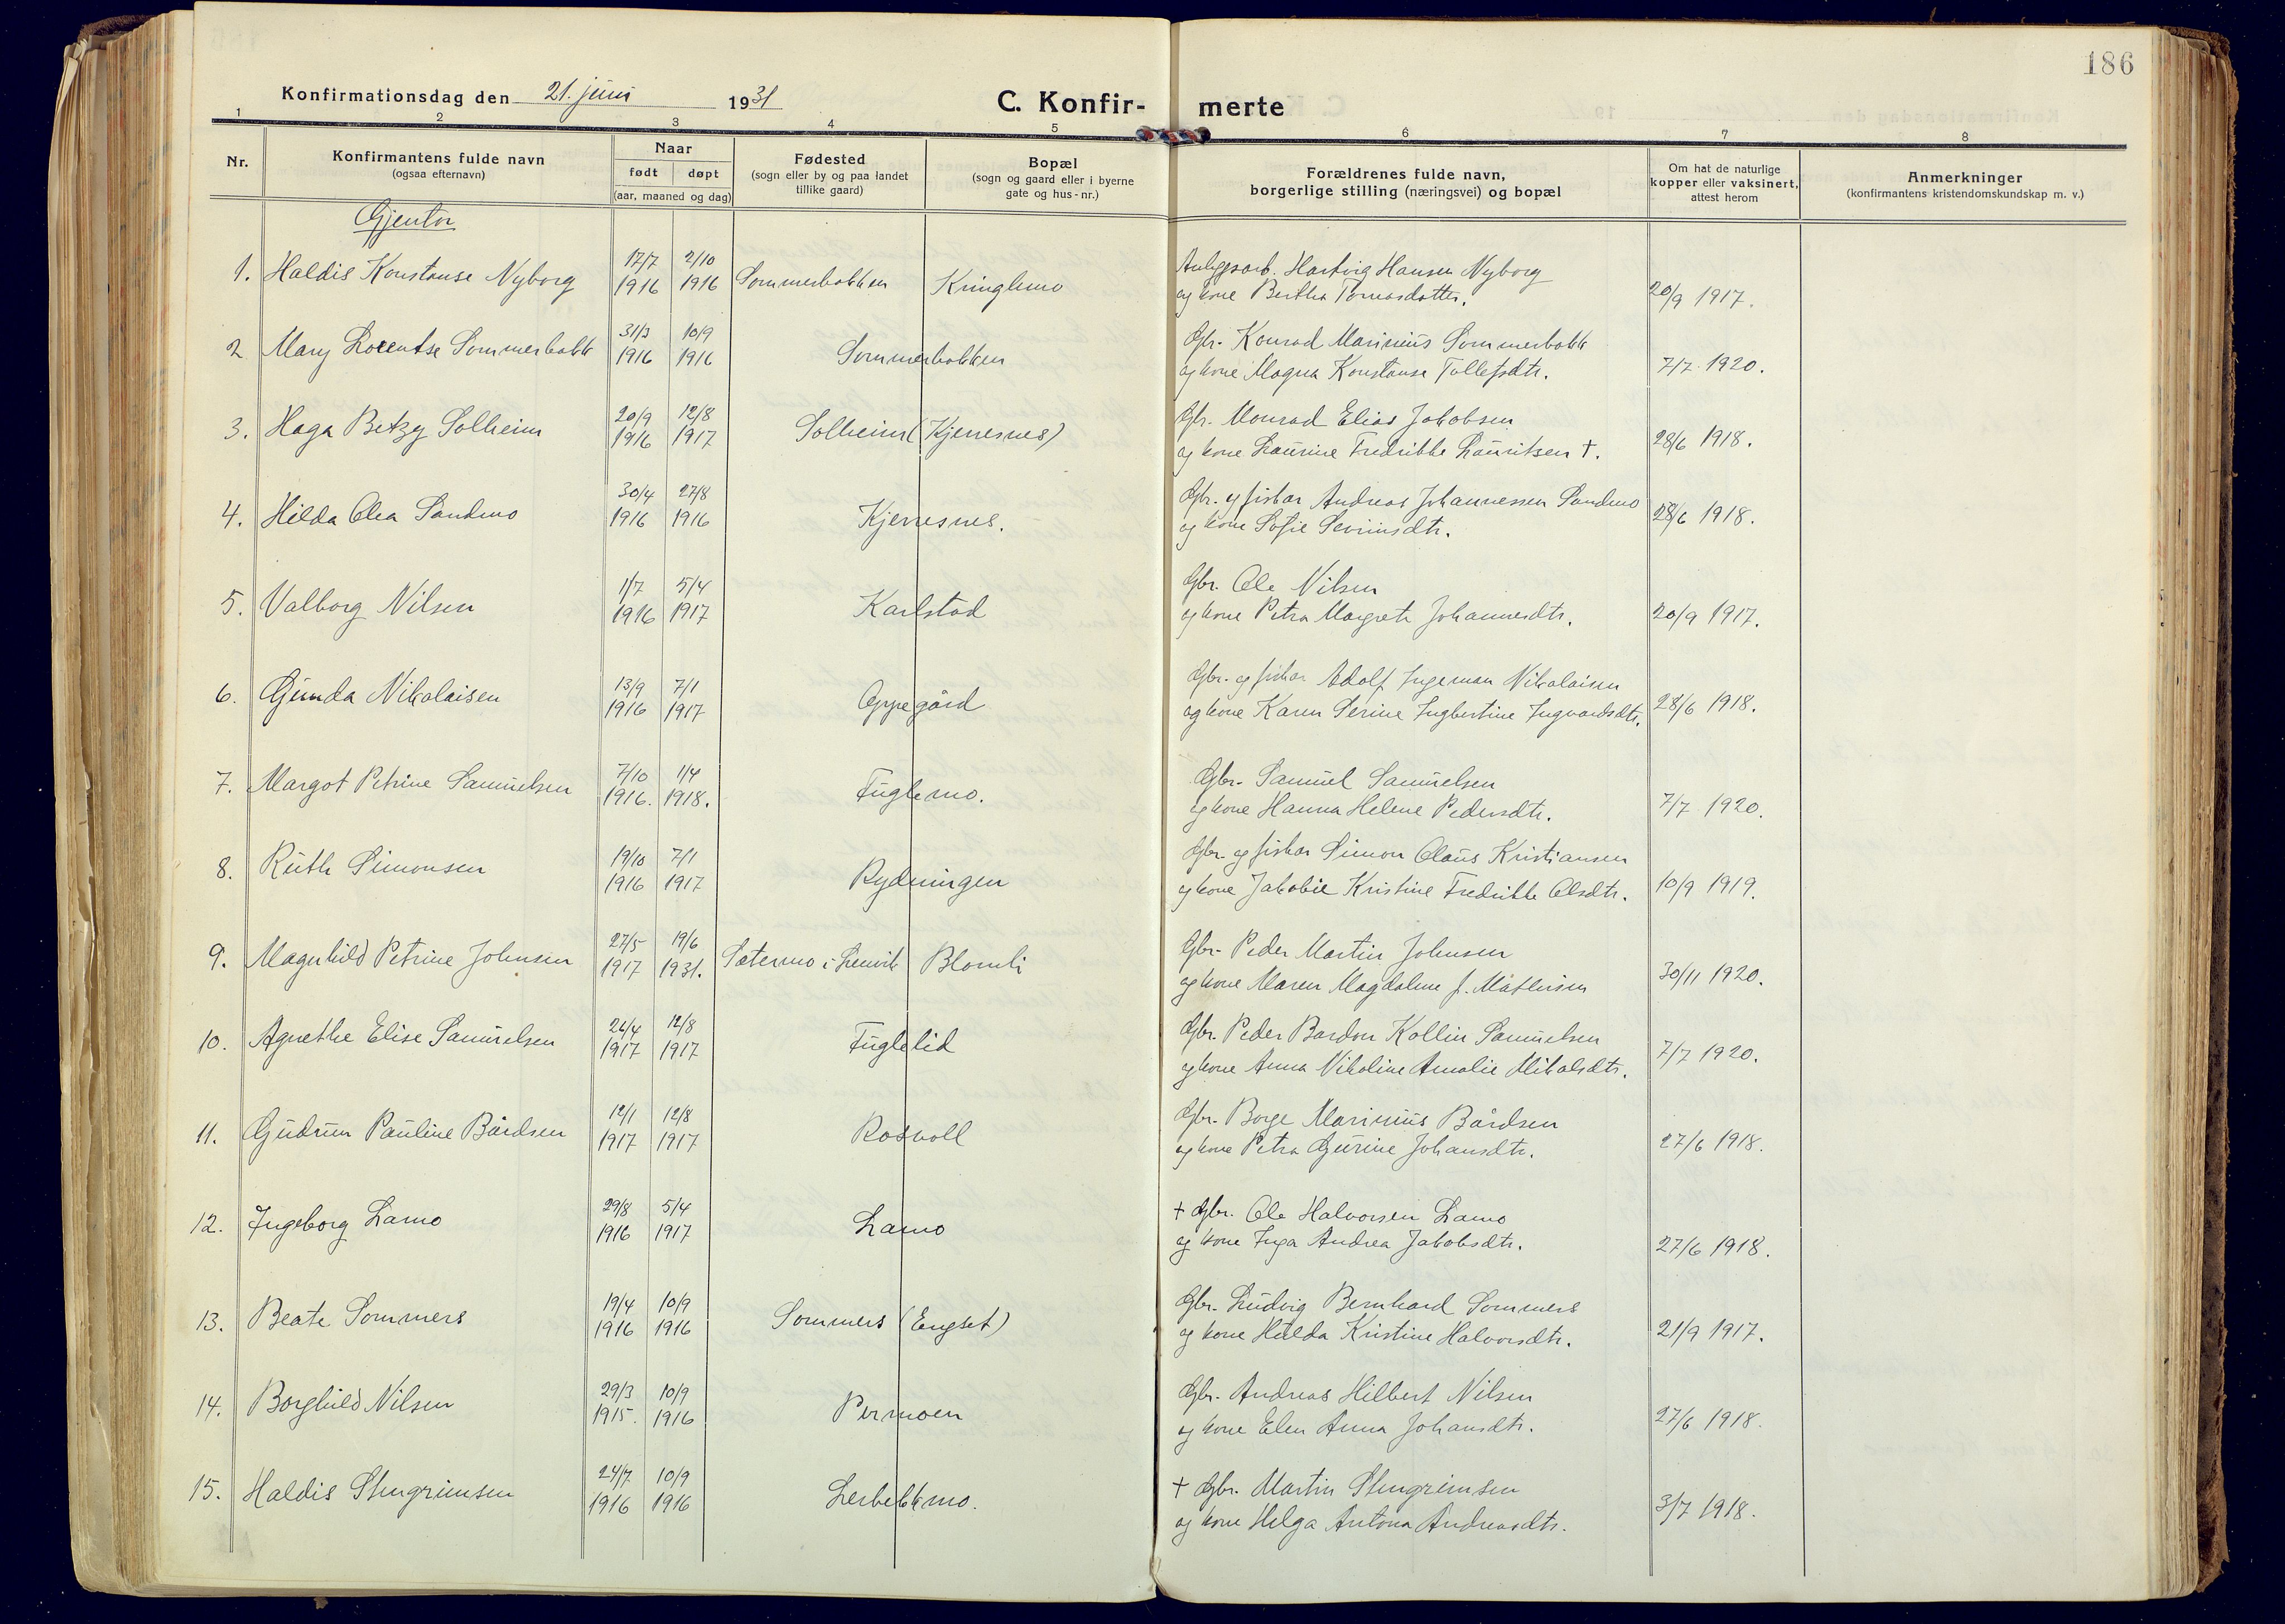 186
Konfirmationsdag den 21. juni 1931
C. Konfir- merte
1 2 3 4 5 6 7 8
Nr.
Konfirmantens fulde navn
(ogsaa efternavn)
Naar
født døpt
(aar, maaned og dag)
Fødested
(sogn eller by og paa landet
tillike gaard)
Bopæl
(sogn og gaard eller i byerne
gate og hus-nr.)
Forældrenes fulde navn,
borgerlige stilling (næringsvei) og bopæl
Om hat de naturlige
kopper eller vaksinert,
attest herom
Anmerkninger
(konfirmantens kristendomskundskap m. v.)
Gjentor
17/7 2/10 Anlegsarb. Hartvig Hansen Nyborg
1. Haldis Konstanse Nyborg 1916 1916 Sommerbakken Kringlemo og kone Bertha Tomasdatter. 20/9 1917.
31/3 10/9 Gbr. Konrad Marinius Sommerbakk
2 Mary Lorentse Sommerbakk 1916 1916 Sommerbakken og kone Magna Konstanse Tollefsdtr. 7/7 1920.
20/9 12/8 Gbr. Monrad Elias Jakobsen
3. Haga Betzy Solheim 1916 1917 Solheim (Kjerresnes) og kone Laurine Fredrikke Lauritsen †. 28/6 1918.
30/4 27/8 Gbr. og fisker Andreas Johannessen Sandmo
4. Hilda Olea Sandmo 1916 1916 Kjerresnes. og kone Sofie Sevrinsdtr. 28/6 1918.
1/7 5/4 Gbr. Ole Nilsen
5. Valborg Nilsen 1916 1917 Karlstad og kone Petra Margrete Johannesdtr. 20/9 1917.
13/9 7/1 Gbr. og fisker Adolf Ingeman Nikolaisen
6. Gunda Nikolaisen 1916 1917 Oppegård og kone Karen Serine Ingbertine Ingvardsdtr. 28/6 1918.
7/10 1/4 Gbr. Samuel Samuelsen
7. Margot Petrine Samuelsen 1916. 1918. Fuglemo. og kone Hanna Helene Pedersdtr. 7/7 1920.
19/10 7/1 Gbr. og fisker Simon Olaus Kristiansen
8. Ruth Simonsen 1916 1917 Rydningen og kone Jakobie Kristine Fredrikke Olsdtr. 10/9 1919.
27/5 19/6 Gbr. Peder Martin Johnsen
9. Magnhild Petrine Johnsen 1917 1931. Sætermo i Lenvik Blomli og kone Maren Magdalene f. Mathisen 30/11 1920.
26/4 12/8 Gbr. Peder Bardon Kollin Samuelsen
10. Agnethe Elise Samuelsen 1917 1917 Fuglelid og kone Anna Nikoline Amalie Mikalsdtr. 7/7 1920.
12/1 12/8 Gbr. Borge Marinius Bårdsen
11. Gudrun Pauline Bårdsen 1917 1917 Rosvoll og kone Petra Gurine Johansdtr. 27/6 1918.
29/8 5/4 † Gbr. Ole Halvorsen Lamo
12. Ingeborg Lamo 1916 1917 Lamo og kone Inga Andrea Jakobsdtr. 27/6 1918.
19/4 10/9 Gbr. Ludvig Bernhard Sommers
13. Beate Sommers 1916 1916 Sommers (Engset) og kone Hilda Kristine Halvorsdtr. 21/9 1917.
29/3 10/9 Gbr. Andreas Hilbert Nilsen
14. Borghild Nilsen 1915. 1916 Permoen og kone Elen Anna Johansdtr. 27/6 1918.
24/7 10/9 † Gbr. Martin Stengrimsen
15. Haldis Stengrimsen 1916 1916 Lerbekkmo. og kone Helga Antona Andreasdtr. 3/7 1918.